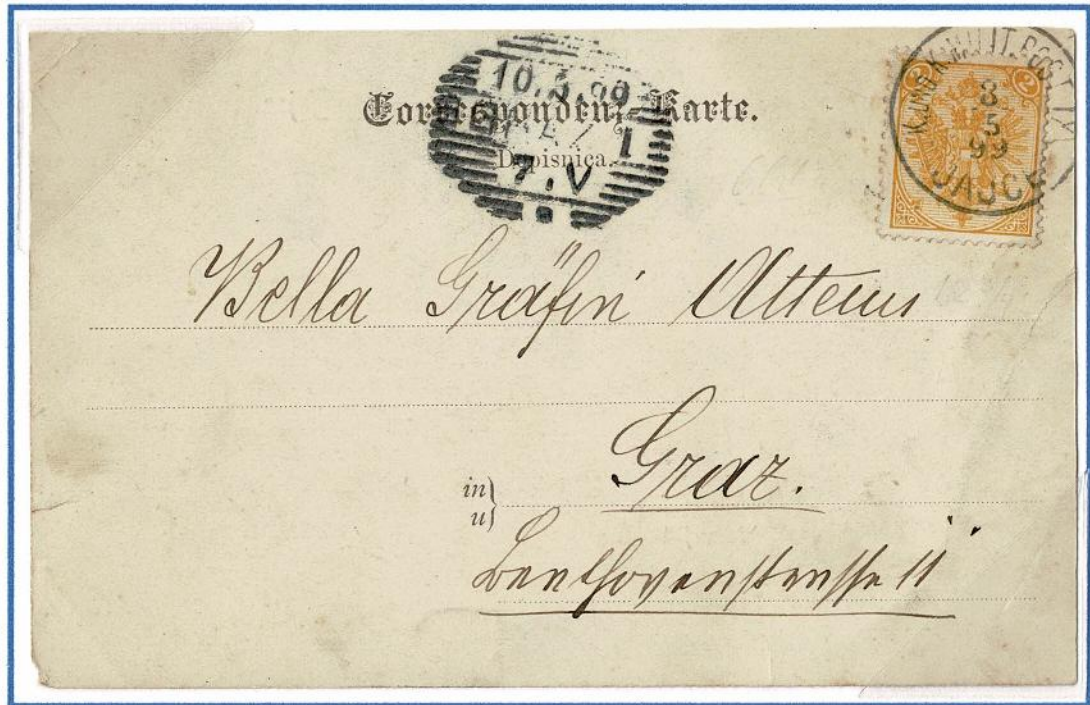 Correspondenz-Karte.
Dopisnica.
10.5.99
GRAZ 1
7.V
2 2
K. und K. MILIT. POST
8
5
99
JAJCE
Bella Gräfin Attems
in
u
Graz.
Beethovenstrasse 11